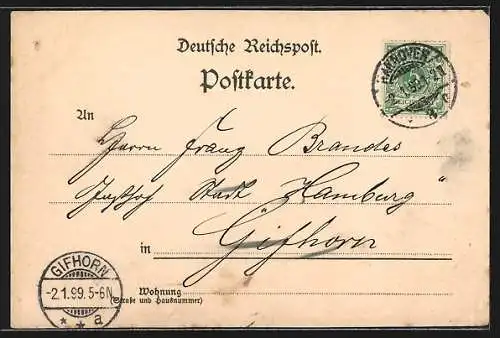 Deutsche Reichspost.
Postkarte.
HANNOVER
An
Herrn Franz Brandes
Gasthof Stadt „Hamburg"
in Gifhorn
GIFHORN
-2.1.99.5-6N
* * a
Wohnung
(Straße und Hausnummer)